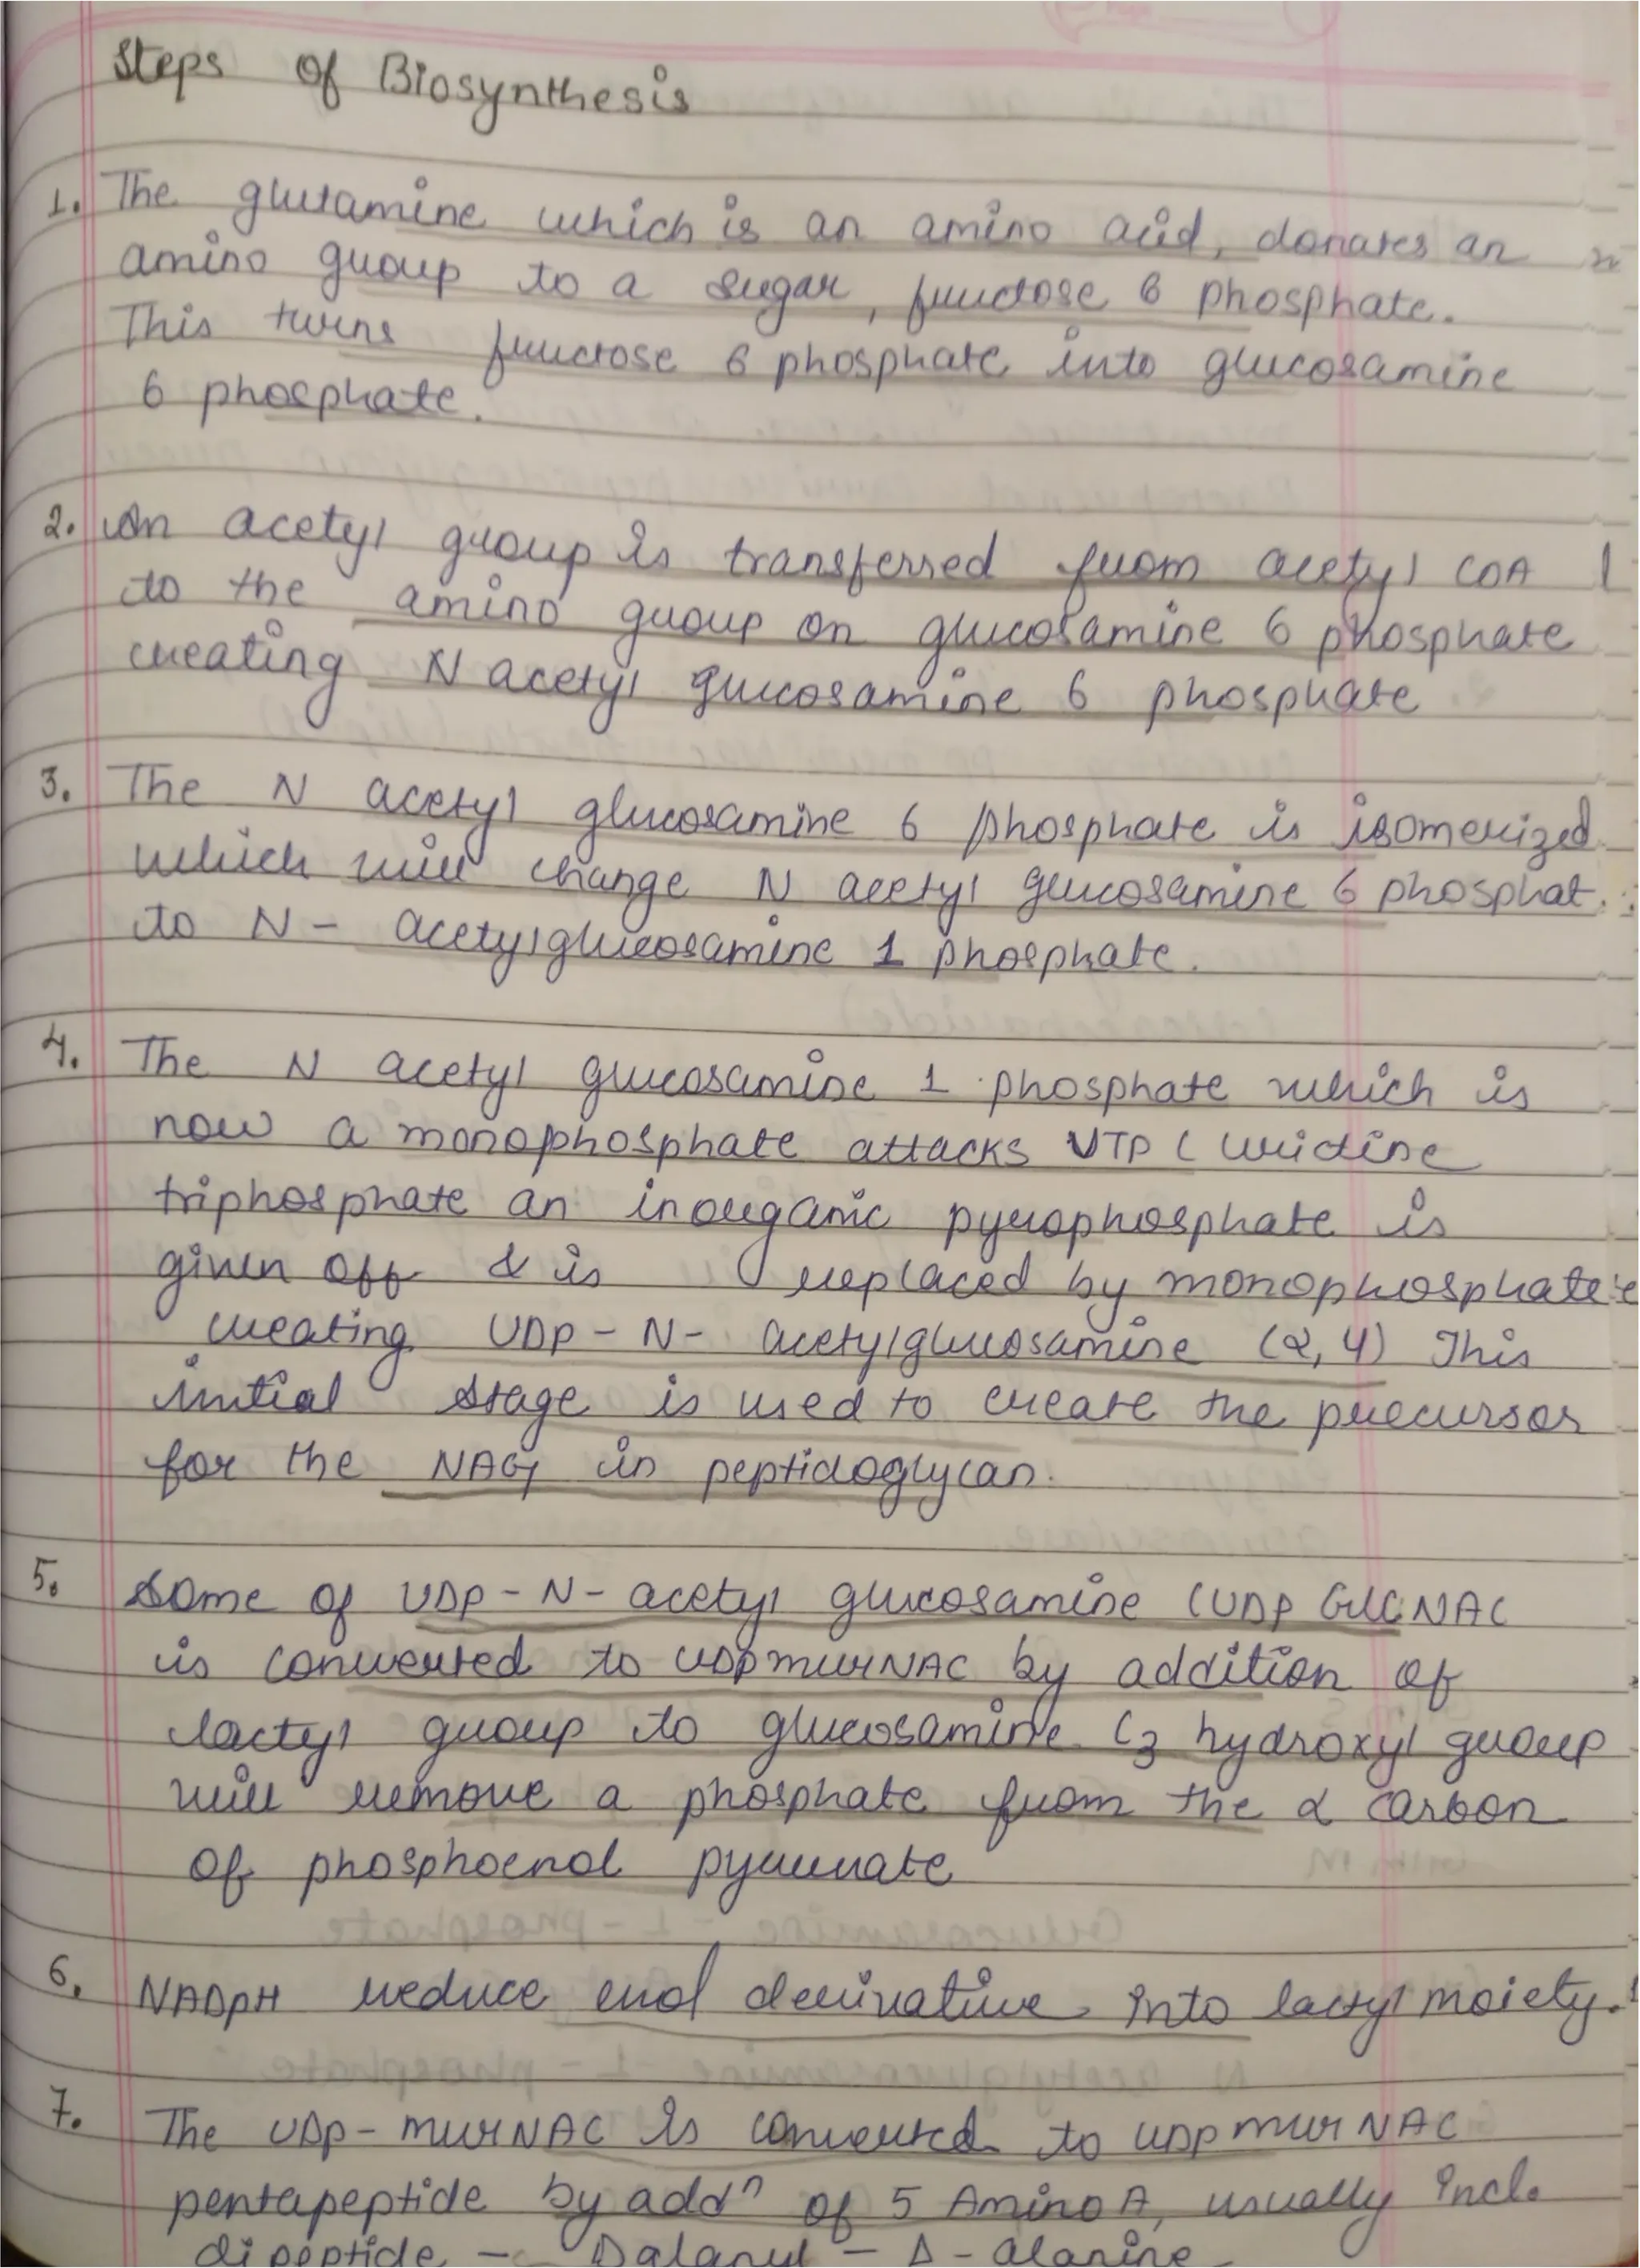 Steps of Biosynthesis
1. The glutamine which is an amino acid, donates an
amino group to a sugar, fructose 6 phosphate.
This turns fructose 6 phosphate into glucosamine
6 phosphate.
2. An acetyl group is transferred from acetyl COA
to the amino group on glucosamine 6 phosphate
creating N acetyl glucosamine 6 phosphate
3. The N acetyl glucosamine 6 phosphate is isomerized
which will change N acetyl glucosamine 6 phosphat.
to N - acetylglucosamine 1 phosphate.
4. The N acetyl glucosamine 1 phosphate which is
now a monophosphate attacks UTP ( Uridine
triphosphate an inorganic pyrophosphate is
given off & is replaced by monophosphate
creating UDP - N - acetylglucosamine (2,4) This
initial stage is used to create the precursor
for the NAG in peptidoglycan.
5. Some of UDP - N - acetyl glucosamine (UDP GlCNAC
is converted to UDPmurNAC by addition of
lactyl group to glucosamine. C3 hydroxyl group
will remove a phosphate from the α carbon
of phosphoenol pyruvate
6. NADPH reduce enol derivative into lactyl moiety.
7. The UDP - murNAC is converted to UDP mur NAC
pentapeptide by addn of 5 Amino A, usually incl.
dipeptide - Dalanyl - D - alanine